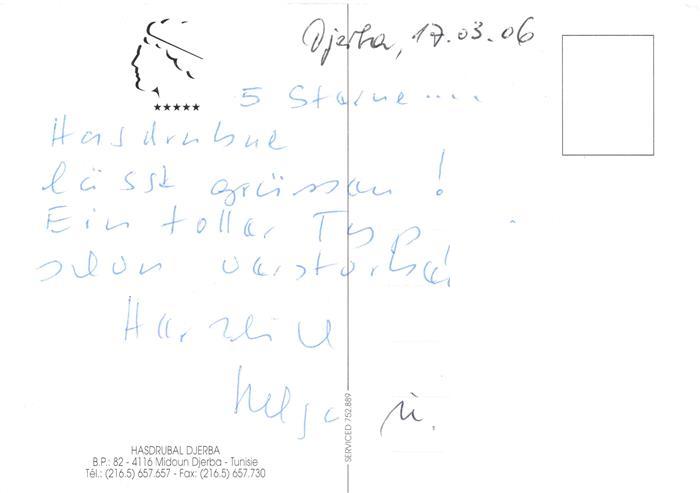 Djerba, 17.03.06
5 Sterne....
Hasdrubal
lässt grüssen!
Ein toller Typ
schon verstorben
Herzlich
Helga M.
SERVICED 752.889
HASDRUBAL DJERBA
B.P.: 82 - 4116 Midoun Djerba - Tunisie
Tél.: (216.5) 657.657 - Fax: (216.5) 657.730